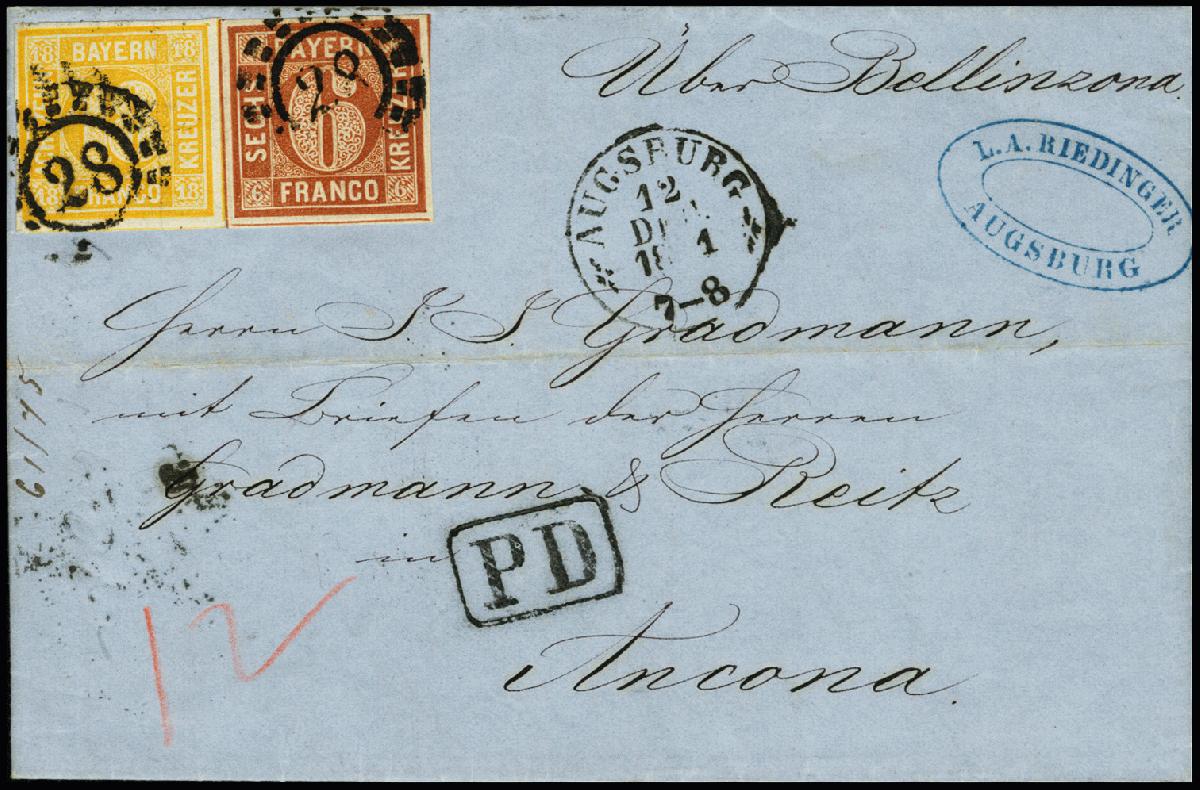 18 BAYERN 18
KREUZER
18 FRANCO 18
28
BAYERN
SECHS
KREUZER
6 FRANCO 6
28
Über Bellinzona.
L. A. RIEDINGER
AUGSBURG
AUGSBURG
12
7-8
Herrn J. J. Gradmann,
mit Briefen der Herren
Gradmann & Reitz
in
Ancona.
PD
12